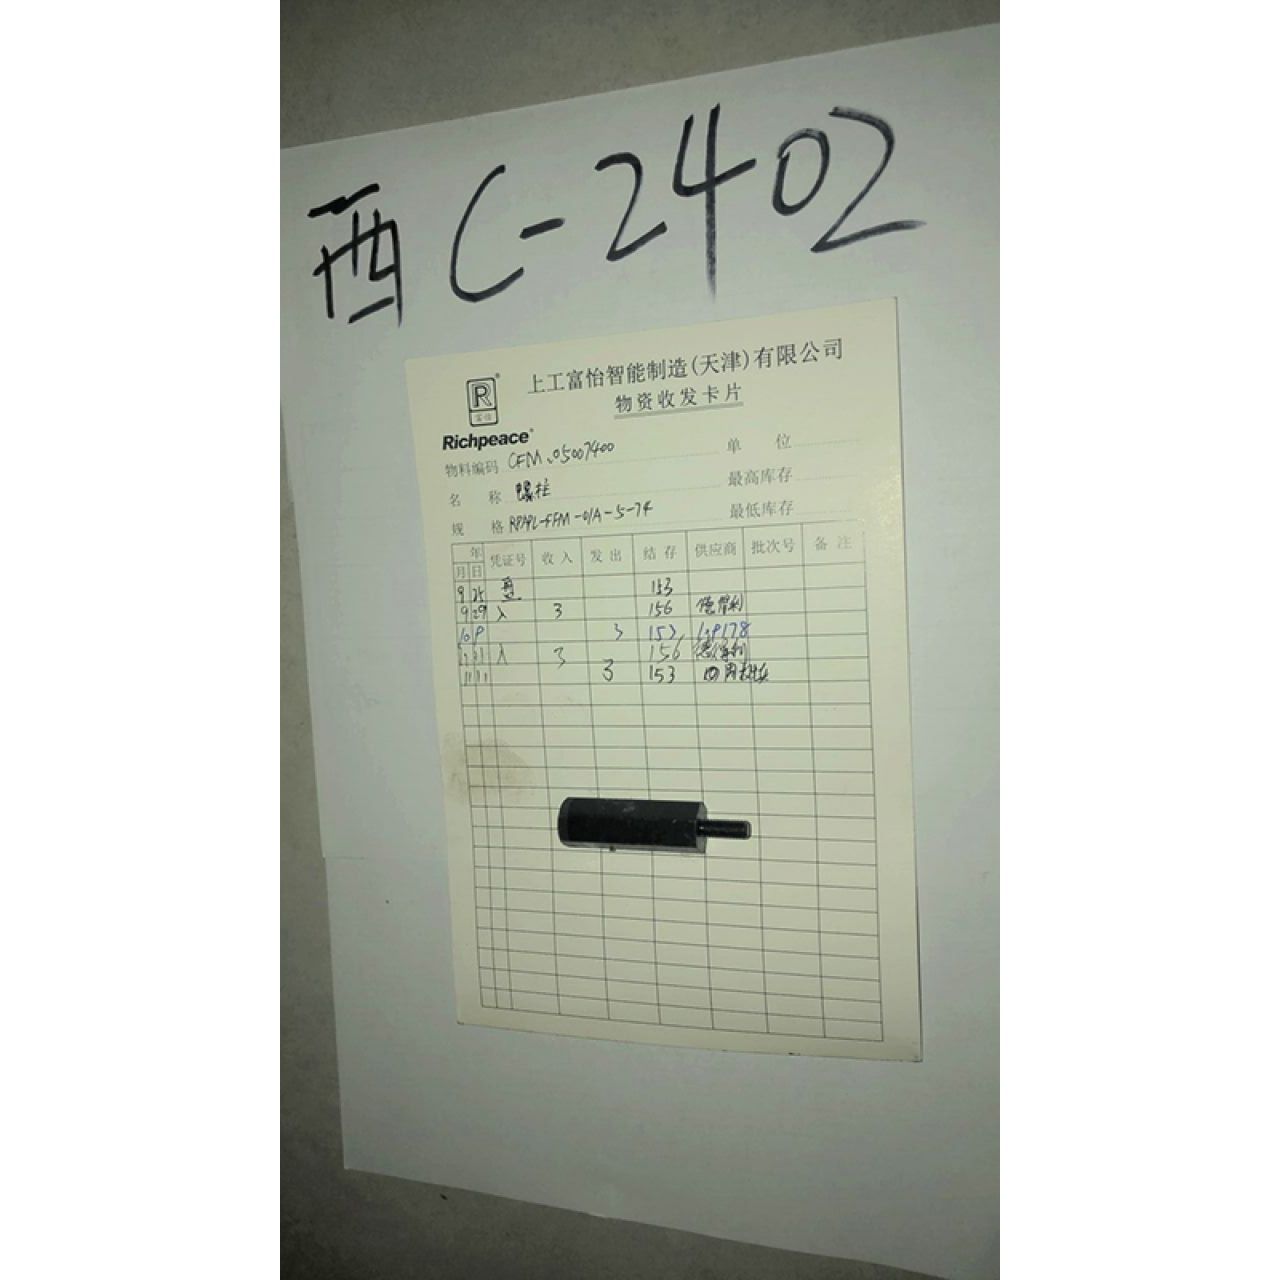 西C-2402
上工富怡智能制造(天津)有限公司
物资收发卡片
R®
富怡
Richpeace®
物料编码 CFM.05007400 单 位
名 称 螺柱 最高库存
规 格 最低库存
年
月 日 凭证号 收入 发出 结存 供应商 批次号 备注
9 25 153
9 29 入 3 156
10 9 3 153
入 3 156
11 11 3 153